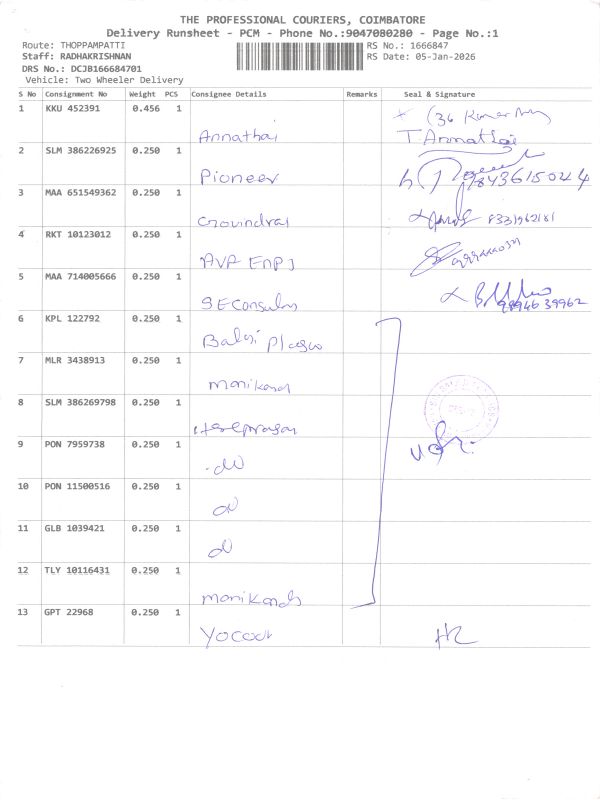 THE PROFESSIONAL COURIERS, COIMBATORE
Delivery Runsheet - PCM - Phone No.:9047080280 - Page No.:1
Route: THOPPAMPATTI RS No.: 1666847
Staff: RADHAKRISHNAN RS Date: 05-Jan-2026
DRS No.: DCJB166684701
Vehicle: Two Wheeler Delivery
S No Consignment No Weight PCS Consignee Details Remarks Seal & Signature
1 KKU 452391 0.456 1
Annathai T Annathai
2 SLM 386226925 0.250 1
Pioneer 9843615044
3 MAA 651549362 0.250 1
Govindraj 8331962181
4 RKT 10123012 0.250 1
AVA
5 MAA 714005666 0.250 1
9894639962
6 KPL 122792 0.250 1
Balaji
7 MLR 3438913 0.250 1
manikand
8 SLM 386269798 0.250 1
9 PON 7959738 0.250 1
10 PON 11500516 0.250 1
11 GLB 1039421 0.250 1
12 TLY 10116431 0.250 1
manikands
13 GPT 22968 0.250 1